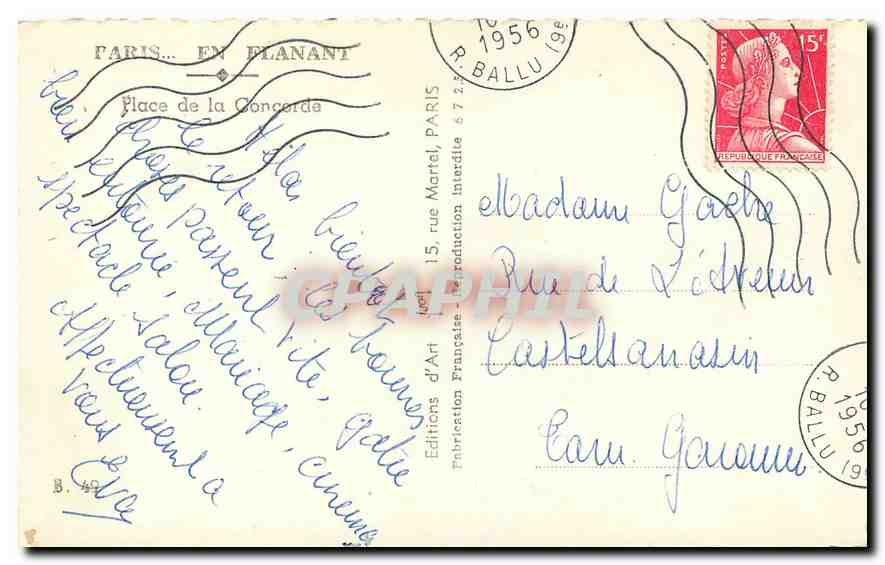 PARIS... EN FLANANT
Place de la Concorde
Hélas bientôt
le retour les bonnes
choses passent vite, gatée
bien entourée, Mariage, cinema
spectacle salon.
affectueusement a
vous Eva
B. 49
Editions d'Art 15, rue Martel, PARIS
Fabrication Française - Reproduction Interdite
CPAPHIL
1956
R. BALLU (9e
POSTES
15F
REPUBLIQUE FRANÇAISE
Madame Gache
Rue de L'Avenir
Castelsarrasin
Tarn Garonne
1956
R. BALLU (9e